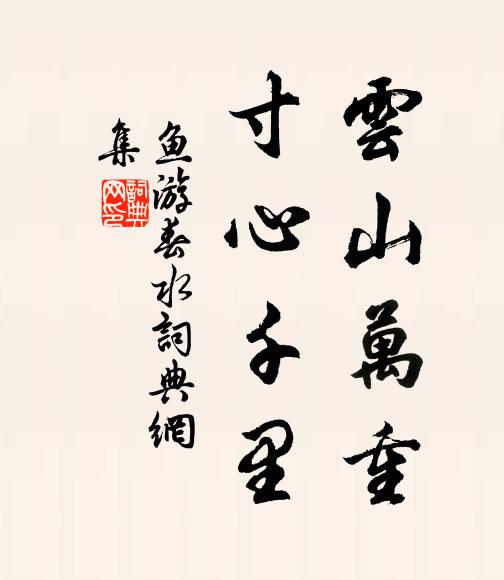 雲山萬重
寸心千里
鱼游春水詞典網
集
詞典
网印